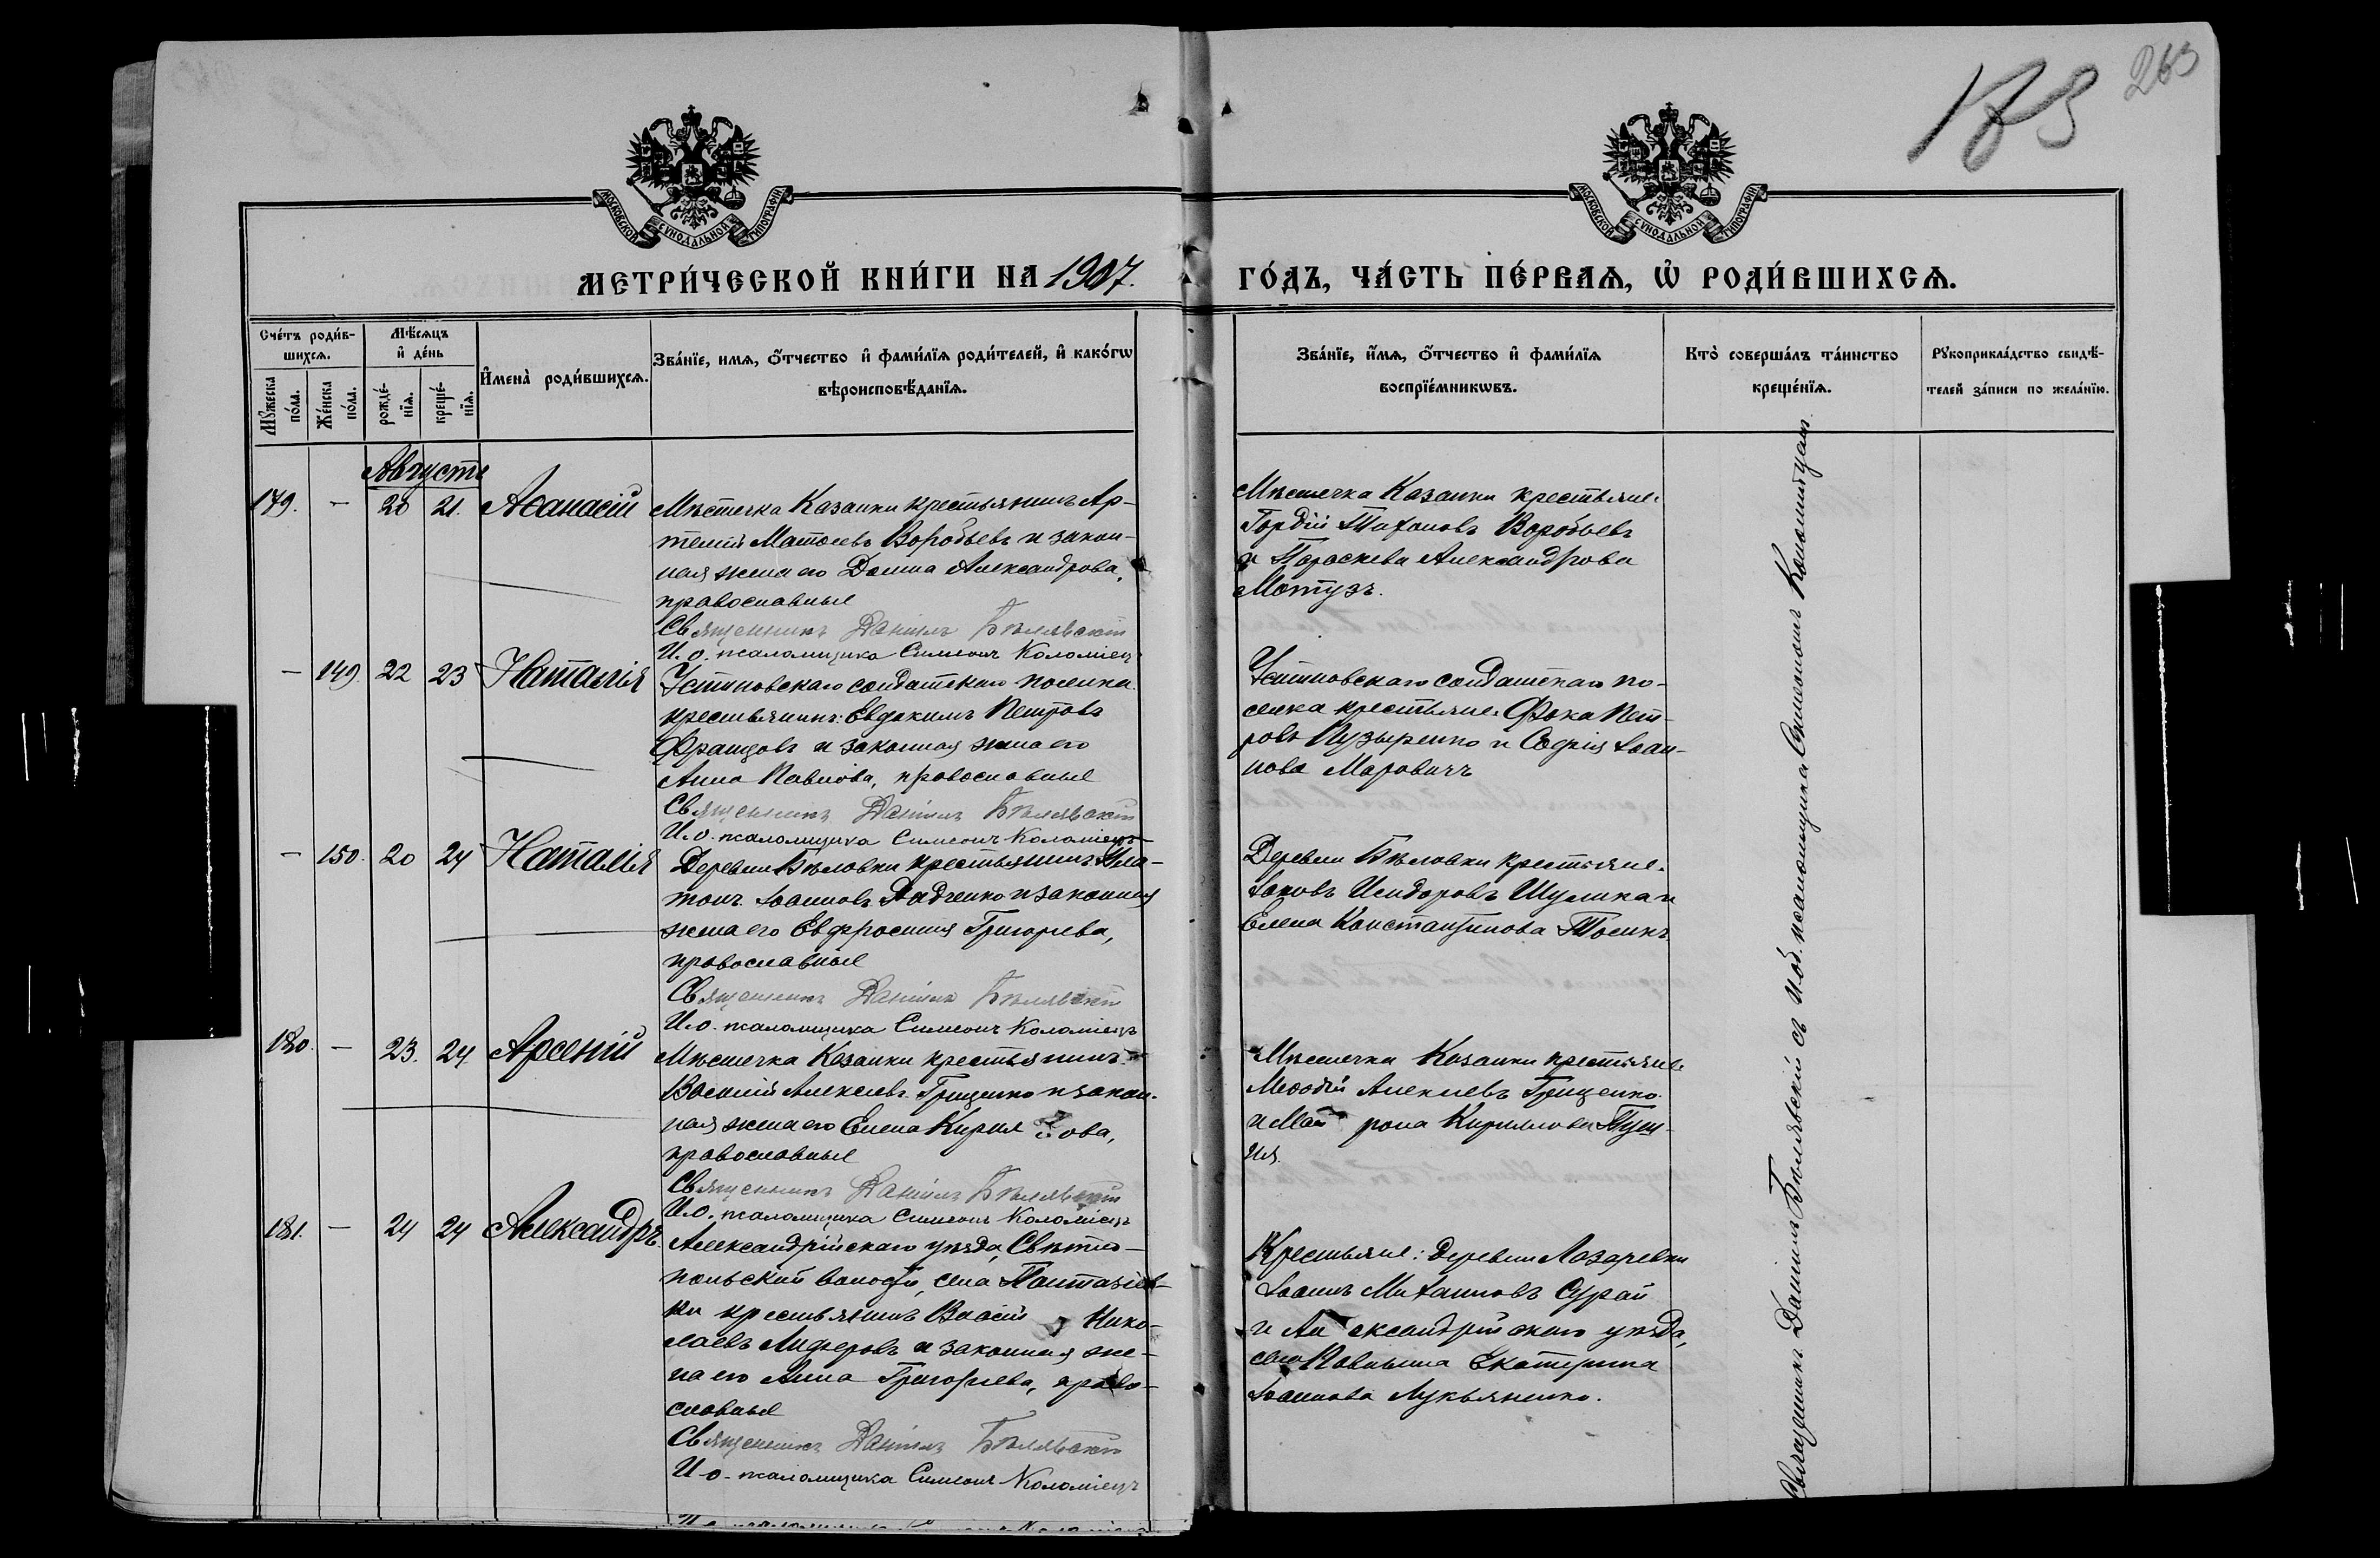 173
263
МОСКОВСКОЙ СѴНОДАЛЬНОЙ ТИПОГРАФІИ
МОСКОВСКОЙ СѴНОДАЛЬНОЙ ТИПОГРАФІИ
МЕТРИ́ЧЕСКОЙ КНИ́ГИ НА 1907.
ГО́ДЪ, ЧА́СТЬ ПЕ́РВАѦ, Ѡ҆ РОДИ́ВШИХСѦ.
Сче́тъ роди́в-
шихсѧ.
Мꙋ́жеска по́ла.
Же́нска по́ла.
Мѣ́сѧцъ
и҆ де́нь
рожде́-
нїѧ.
креще́-
нїѧ.
И҆мена̀ роди́вшихсѧ.
Зва́нїе, имѧ, ѻ҆́тчество и҆ фами́лїѧ роди́телей, и҆ како́гѡ
вѣроисповѣ́данїѧ.
Зва́нїе, и҆́мѧ, ѻ҆́тчество и҆ фами́лїѧ
воспрїе́мникѡвъ.
Кто̀ соверша́лъ та́инство
креще́нїѧ.
Рꙋкоприкла́дство свидѣ́-
телей за́писи по жела́нїю.
Августъ
179. — 20 21. Аѳанасій
Мѣстечка Казанки крестьянинъ Ар-
темій Матѳеевъ Воробьевъ и закон-
ная жена его Домна Александрова,
православные
Священникъ Даніилъ Бѣлявскій
И. о. псаломщика Симеонъ Коломіецъ
Мѣстечка Казанки крестьяне:
Гордій Тихоновъ Воробьевъ
и Параскева Александрова
Мотузъ.
— 149. 22 23 Наталія
Устиновскаго солдатскаго поселка
крестьянинъ: Евдокимъ Петровъ
Францовъ и законная жена его
Анна Павлова, православные
Священникъ Даніилъ Бѣлявскій
И. о. псаломщика Симеонъ Коломіецъ
Устиновскаго солдатскаго по-
селка крестьяне: Фока Пет-
ровъ Пузыренко и Софія Іоан-
нова Маровичъ
— 150. 20 24 Наталія
Деревни Бѣловки крестьянинъ Пла-
тонъ Іоанновъ Радченко и законная
жена его Евфросинія Григорьева,
православные
Священникъ Даніилъ Бѣлявскій
И. о. псаломщика Симеонъ Коломіецъ
Деревни Бѣловки крестьяне:
Іаковъ Исидоровъ Шулика и
Елена Константинова
180. — 23. 24 Арсеній
Мѣстечка Казанки крестьянинъ
Василій Алексѣевъ Грищенко и закон-
ная жена его Елена Кирил ова,
православные
Священникъ Даніилъ Бѣлявскій
И. о. псаломщика Симеонъ Коломіецъ
Мѣстечка Казанки крестьяне
Меѳодій Алексѣевъ Грищенко
и Мат рона Кириллова
181. — 24 24 Александръ.
Александрійскаго уѣзда, Свѣтло-
польской волости, села Пантазіев-
ки крестьянинъ Василій Нико-
лаевъ Лиферовъ и законная же-
на его Анна Григорьева, право-
славные
Священникъ Даніилъ Бѣлявскій
И. о. псаломщика Симеонъ Коломіецъ
Крестьяне: деревни Лазаревки
Іоаннъ Михаиловъ Сурай
и Александрійскаго уѣзда,
села Павлыша Екатерина
Іоаннова Лукьяненко.
Священникъ Даніилъ Бѣлявскій съ и. об. псаломщика Симеономъ Коломійцемъ.